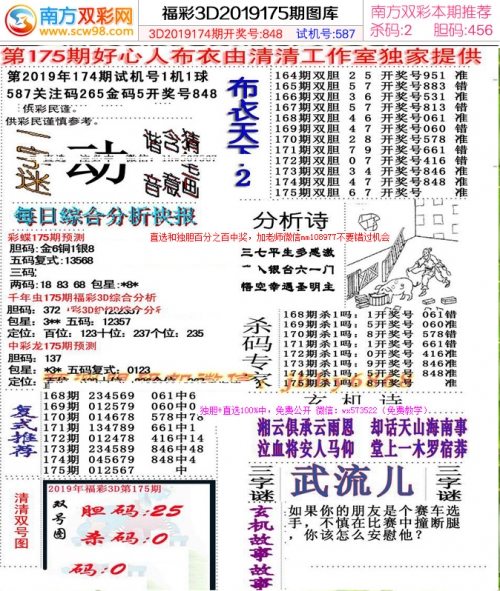 南方双彩网
www.scw98.com
福彩3D2019175期图库
3D2019174期开奖号:848
试机号:587
南方双彩本期推荐
杀码:2 胆码:456
第175期好心人布衣由清清工作室独家提供
第2019年174期试机号1机1球
587关注码265金码5开奖号848
供彩民谨慎参考。
一字谜
动
布衣天下2
164期双胆 2 5 开奖号951 准
165期双胆 5 7 开奖号883 错
166期双胆 3 6 开奖号531 准
167期双胆 5 7 开奖号813 错
168期双胆 4 6 开奖号061 准
169期双胆 4 7 开奖号060 错
170期双胆 2 8 开奖号578 准
171期双胆 7 9 开奖号661 错
172期双胆 0 7 开奖号416 错
173期双胆 3 4 开奖号846 准
174期双胆 4 7 开奖号848 准
175期双胆 6 7 开奖号 准
每日综合分析快报
彩蝶175期预测
胆码:金6铜1银8
五码复式:13568
三码:
两码:18 83 68 包星:*8*
千年虫175期福彩3D综合分析
胆码: 372
包星: 3** 五码: 12357
定位: 百位: 123十位: 237个位: 235
中彩龙175期预测
胆码: 137
包星: *3* 五码复式: 0123
直选和独胆百分之百中奖,加老师微信nm108977不要错过机会
分析诗
三七平生多感激
银台六一门
悟空幸遇圣明主
杀码专家
168期杀1吗: 1开奖号 061错
169期杀1吗: 5开奖号 060准
170期杀1吗: 8开奖号 578错
171期杀1吗: 0开奖号 661准
172期杀1吗: 0开奖号 416准
173期杀1吗: 9开奖号 846准
174期杀1吗: 开奖号 848准
175期杀1吗: 8开奖号 准
复式推荐
168期 234569 061中6
169期 012579 060中0
170期 014678 578中78
171期 134789 661中1
172期 012478 416中14
173期 234589 846中48
174期 045679 848中4
175期 012567 中
玄机诗
独胆+直选100%中,免费公开 微信: wx573522 (免费教学)
湘云俱承云雨恩 却话天山海南事
泣血将安人马仰 堂上一木罗宿莽
清清双号图
2019年福彩3D第175期
双号图
胆码:25
杀码:0
码:0
三字谜
武流儿
三字谜
玄机故事
如果你的朋友是个赛车选
手,不慎在比赛中撞断腿
,你该怎么安慰他?